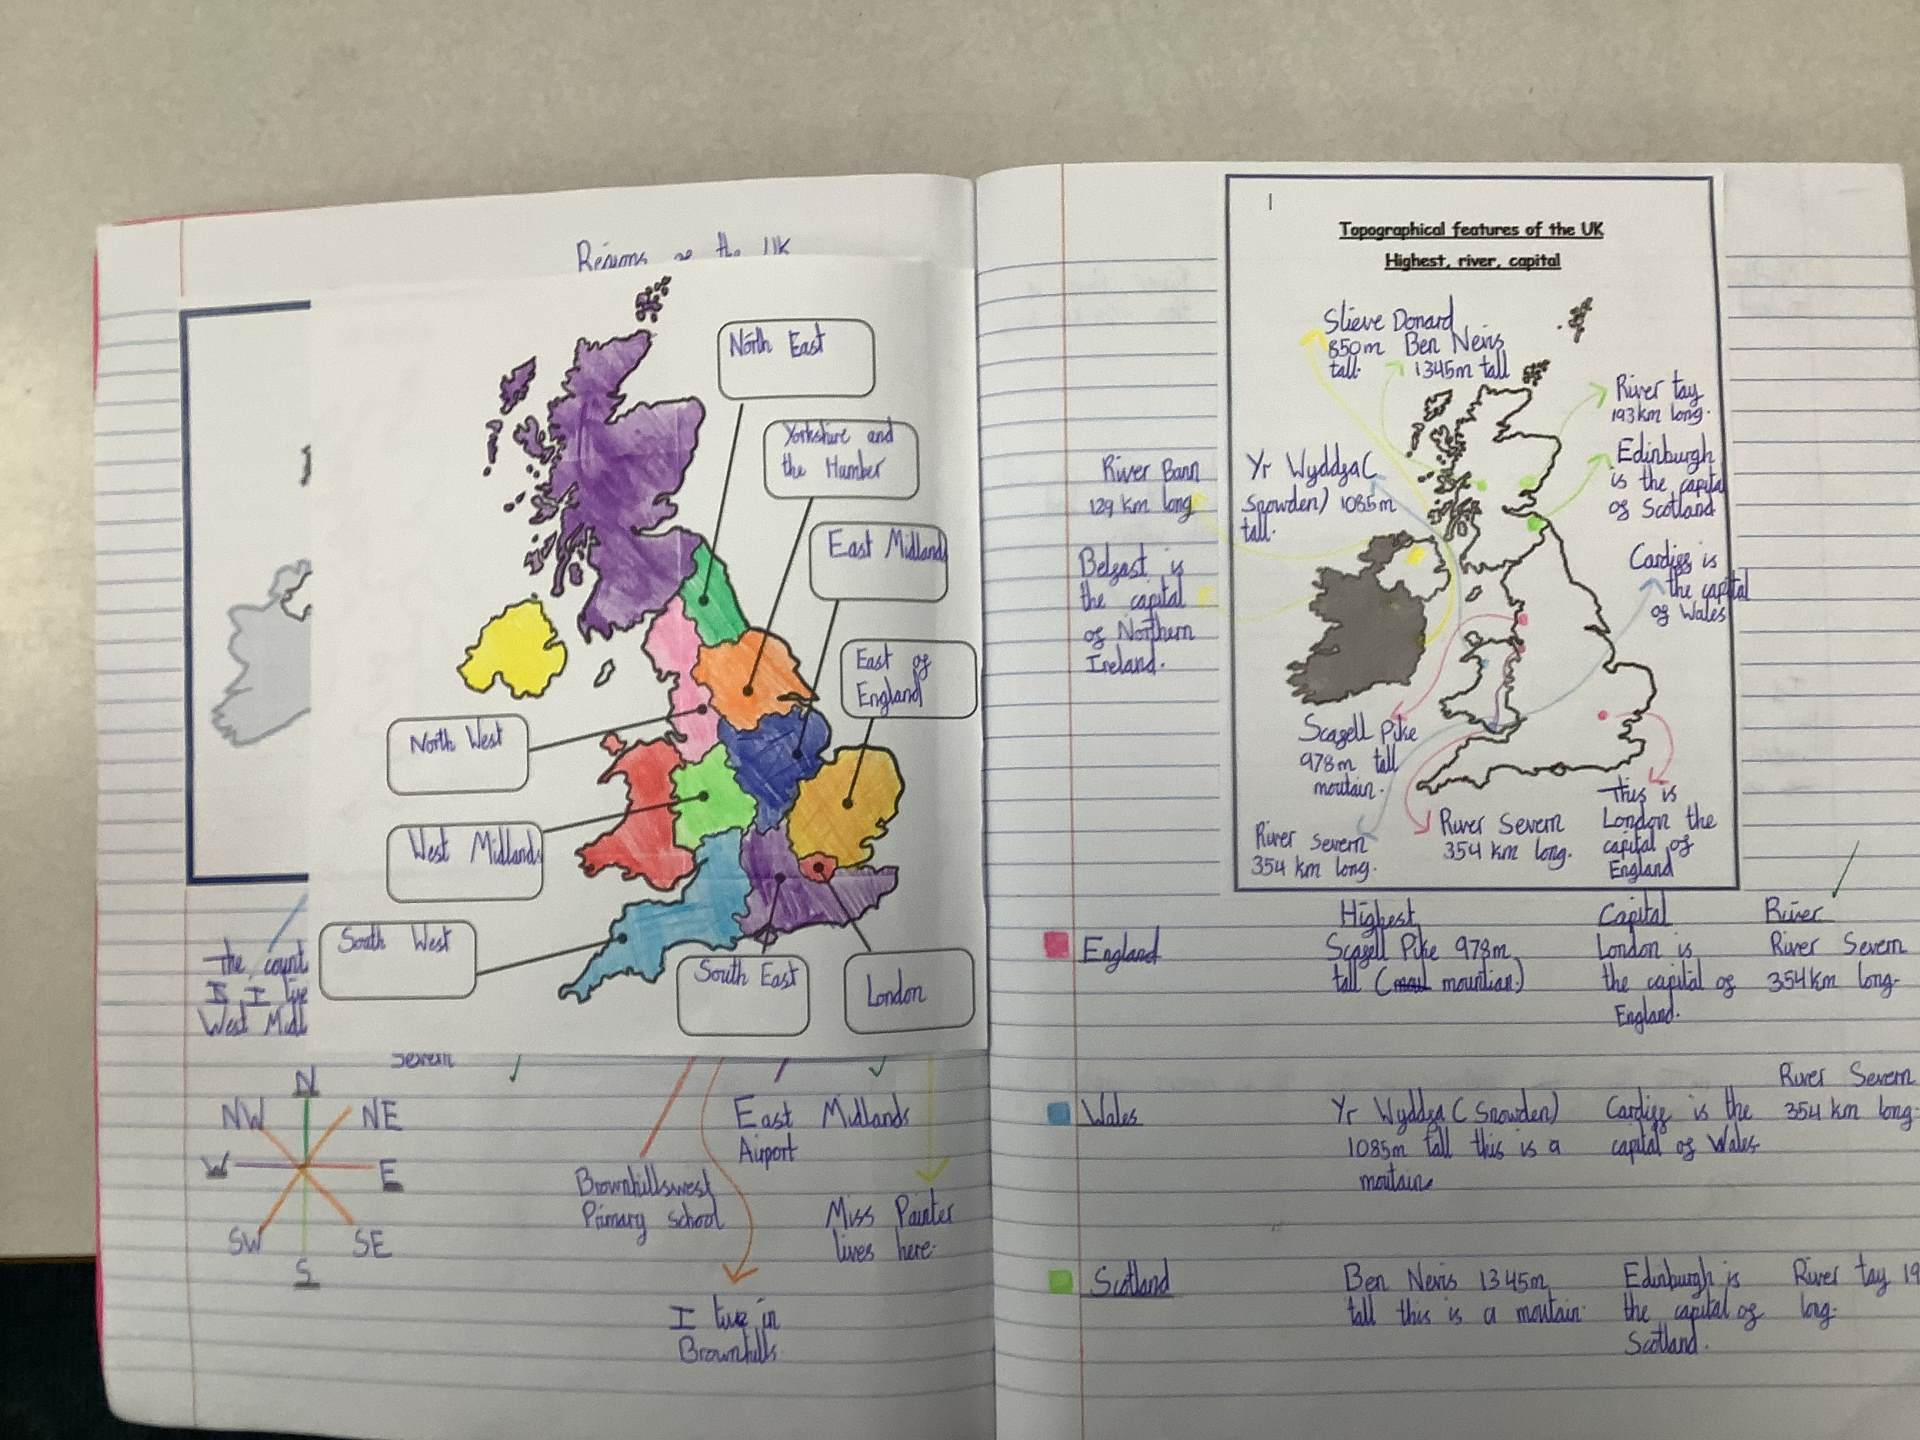 Regions of the UK
North East
Yorkshire and
the Humber
East Midlands
East of
England
North West
West Midlands
South West
South East
London
The count
I live
West Midl
Severn
N
NW
NE
W
E
SW
SE
S
East Midlands
Airport
Brownhillswest
Primary school
Miss Painter
lives here.
I live in
Brownhills
Topographical features of the UK
Highest, river, capital
Slieve Donard
850m
tall.
Ben Nevis
1345m tall
River tay
193km long.
Edinburgh
is the capital
of Scotland
Yr Wyddfa(
Snowden) 1085m
tall.
River Bann
129 km long
Belfast is
the capital
of Northern
Ireland.
Cardiff is
the capital
of Wales
Scafell Pike
978m tall
moutain.
River Severn
354 km long.
River Severn
354 km long.
This is
London the
capital of
England
Highest
Capital
River
England
Scafell Pike 978m
tall ( mountian.)
London is
the capital of
England.
River Severn
354km long.
Wales
Yr Wyddfa ( Snowden)
1085m tall this is a
moutain
Cardiff is the
capital of Wales
River Severn
354 km long.
Scotland
Ben Nevis 1345m
tall this is a moutain
Edinburgh is
the capital of
Scotland.
River tay 19
long.